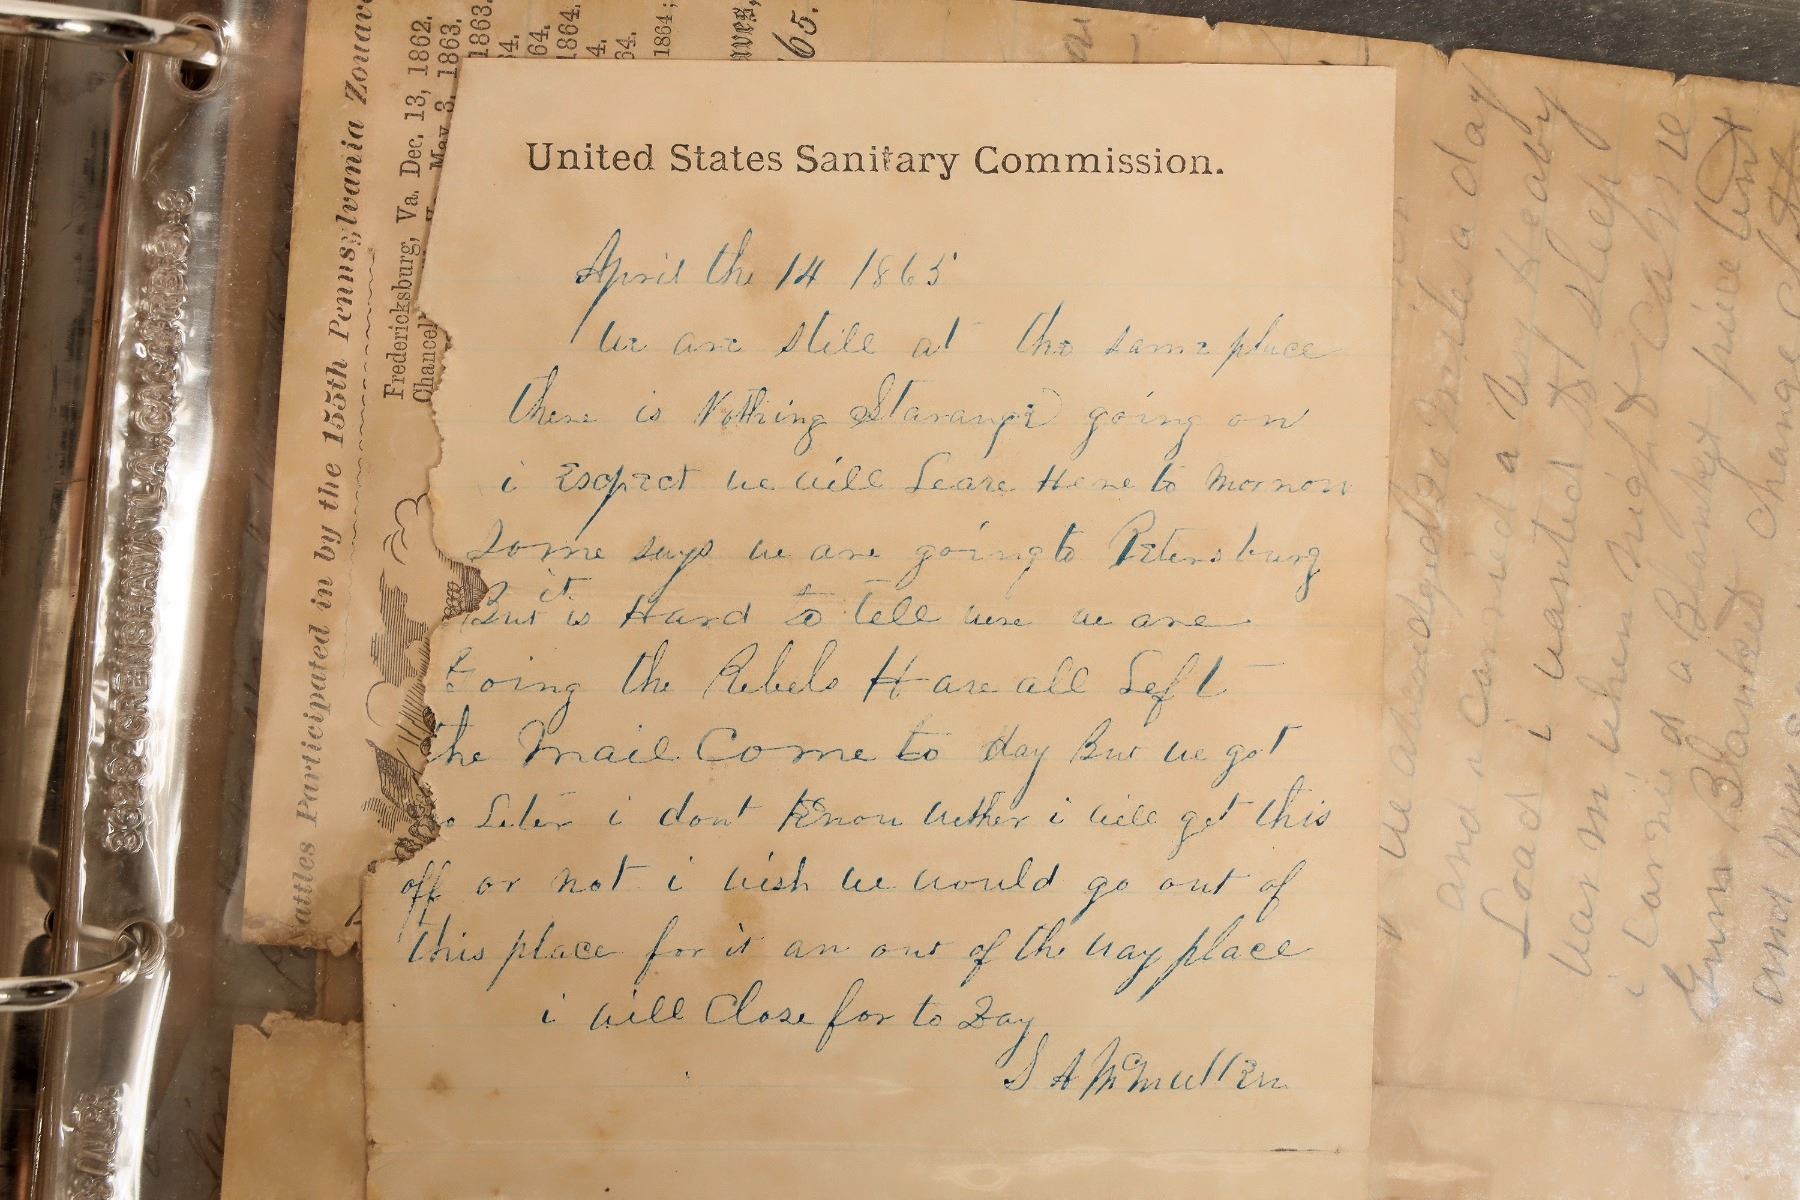 United States Sanitary Commission.
April the 14 1865
We are still at the same place
there is Nothing Starange going on
i Escpect we will Leave Here to Morrow
Some says we are going to Petersburg
But it is Hard to tell were we are
Going the Rebels Have all Left
the Mail Come to day But we got
no Leter i dont Know wether i will get this
off or not i wish we would go out of
this place for it an out of the way place
i will Close for to Day
S A McMullen
Battles Participated in by the 155th Pennsylvania Zouave
Fredericksburg, Va. Dec. 13, 1862.
Chancell May 3, 1863.
1863.
64.
1864.
4.
64.
1864;
65.
a day
and i carried a very Heavy
Load i wanted to sleep
warm when night came
i carried a Blanket
Gum Blanket change
and my